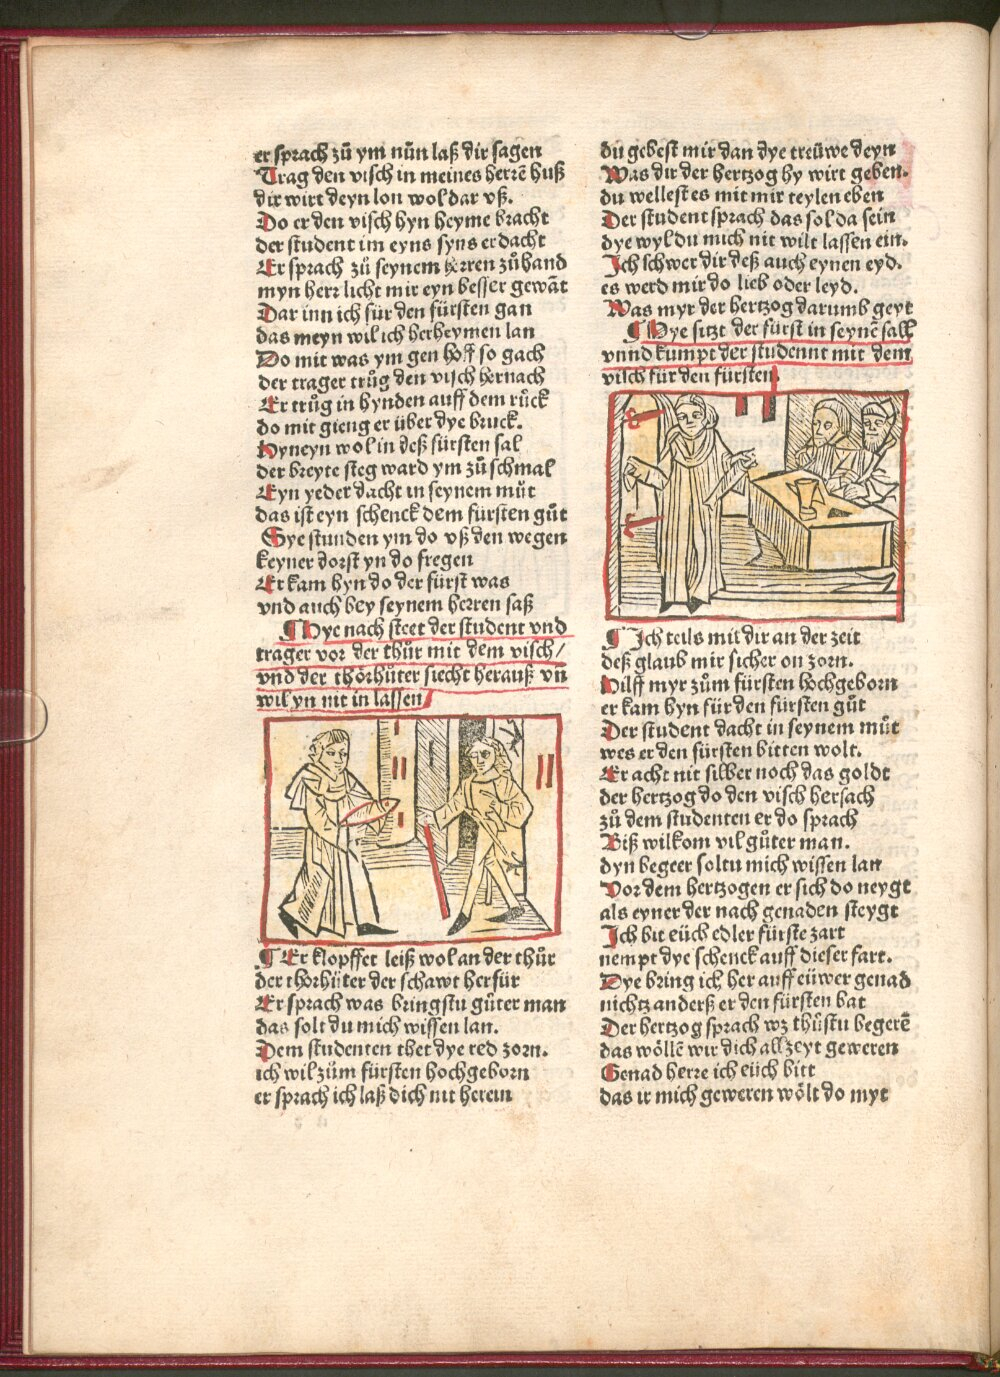 er sprach zů ym nůn laß dir sagen
Trag den visch in meines herrē huß
dir wirt deyn lon wol dar vß.
Do er den visch hyn heyme bracht
der student im eyns syns erdacht
Er sprach zů seynem herren zůhand
myn herr licht mir eyn besser gewāt
Dar inn ich für den fürsten gan
das meyn wil ich herheymen lan
Do mit was ym gen hoff so gach
der trager trůg den visch hernach
Er trůg in hynden auff dem rück
do mit gieng er über dye bruck.
Hyneyn wol in deß fürsten sal
der breyte steg ward ym zů schmal
Eyn yeder dacht in seynem můt
das ist eyn schenck dem fürsten gůt
Sye stunden ym do vß den wegen
keyner dorst yn do fregen
Er kam hyn do der fürst was
vnd auch bey seynem herren saß
¶ Hye nach steet der student vnd
trager vor der thür mit dem visch/
vnd der thörhüter siecht herauß vñ
wil yn nit in lassen
¶ Er klopffet leiß wol an der thür
der thorhüter der schawt herfür
Er sprach was bringstu gůter man
das solt du mich wissen lan.
Dem studenten thet dye red zorn.
ich wil zům fürsten hochgeborn
er sprach ich laß dich nit herein
du gebest mir dan dye treüwe deyn
Was dir der hertzog hy wirt geben.
du wellest es mit mir teylen eben
Der student sprach das sol da sein
dye wyl du mich nit wilt lassen ein.
Ich schwer dir deß auch eynen eyd.
es werd mir do lieb oder leyd.
Was myr der hertzog darumb geyt
¶ Hye sitzt der fürst in seynē sall
vnnd kumpt der studennt mit dem
visch für den fürsten.
¶ Ich teils mit dir an der zeit
deß glaub mir sicher on zorn.
Hilff myr zům fürsten hochgeborn
er kam hyn für den fürsten gůt
Der student dacht in seynem můt
wes er den fürsten bitten wolt.
Er acht nit silber noch das goldt
der hertzog do den visch hersach
zů dem studenten er do sprach
Biß wilkom vil gůter man.
dyn begeer soltu mich wissen lan
Vor dem hertzogen er sich do neygt
als eyner der nach genaden steygt
Ich bit eüch edler fürste zart
nempt dye schenck auff dieser fart.
Dye bring ich her auff eüwer genad
nichtz anderß er den fürsten bat
Der hertzog sprach wz thůstu begerē
das wöllē wir dich allzeyt geweren
Genad herre ich eüch bitt
das ir mich geweren wölt do myt